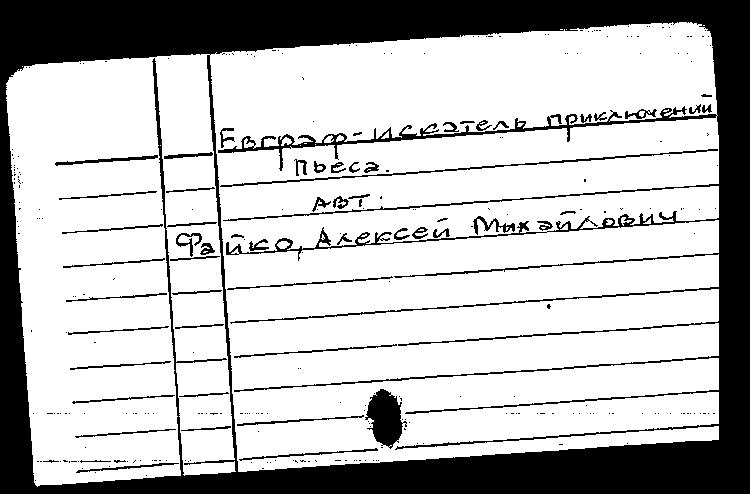 Евграф-искатель приключений
Пьеса.
АВТ:
Файко, Алексей Михайлович